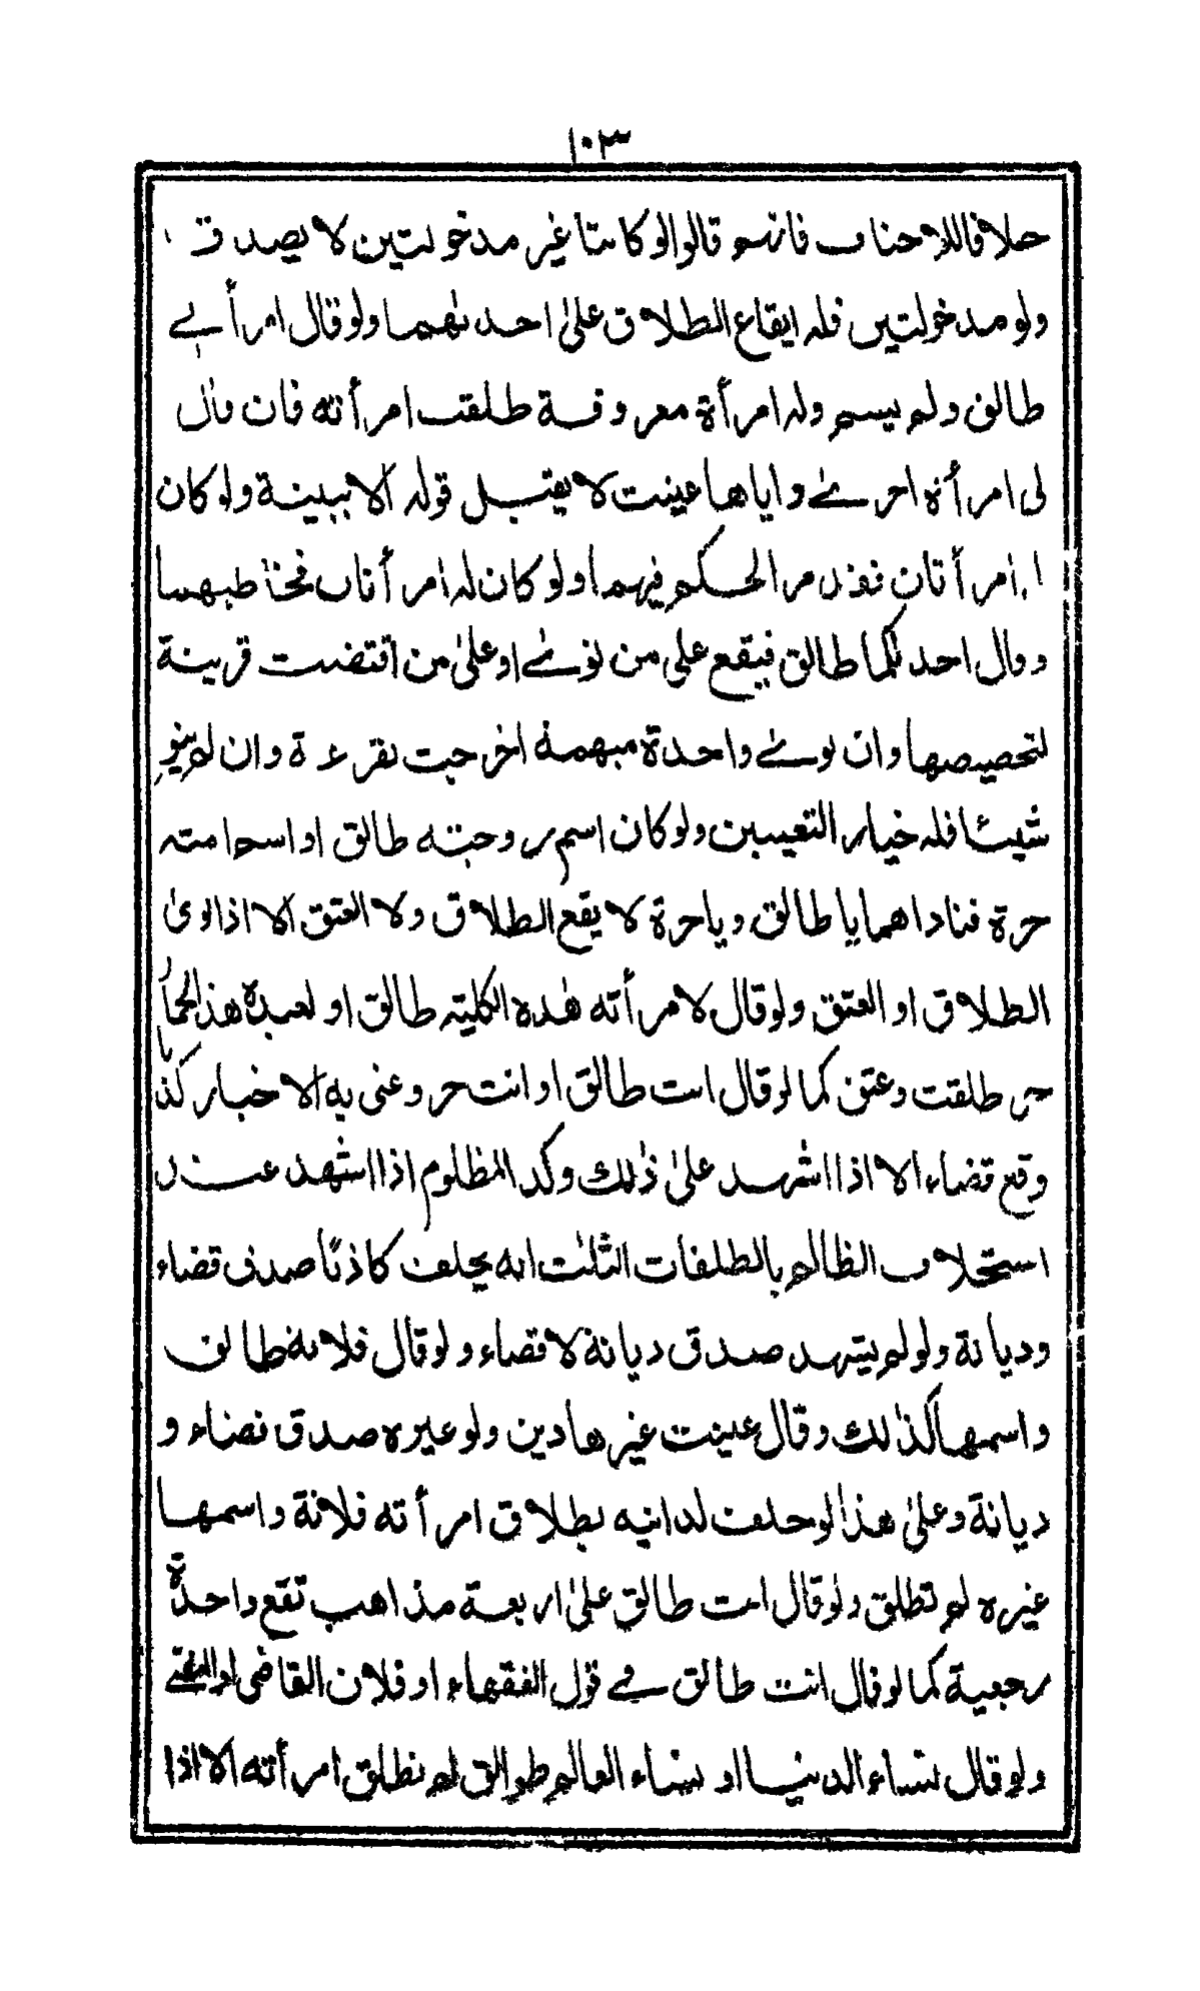 ١٠٣
خلافا للاحناف فانهم قالوا لو كانتا غير مدخولتين لا يصدق
ولو مدخولتين فله ايقاع الطلاق على احدىهما ولو قال امرأتي
طالق ولم يسم وله امرأة معروفة طلقت امرأته فان قال
لى امرأة اخرى واياها عينت لا يقبل قوله الا ببينة ولو كان
له امرأتان فقد مر الحكم فيهما ولو كان له امرأتان فخاطبهما
وقال احدىكما طالق فيقع على من نوى او على من اقتضت قرينة
لتخصيصها وان نوى واحدة مبهمة اخرجت بقرعة وان لم ينو
شيئا فله خيار التعيين ولو كان اسم زوجته طالق او اسم امته
حرة فناداهما يا طالق ويا حرة لا يقع الطلاق ولا العتق الا اذا نوى
الطلاق او العتق ولو قال لامرأته هذه الكلبة طالق او لعبده هذا الحمار
حر طلقت وعتق كما لو قال انت طالق او انت حر وعنى به الاخبار كذبا
وقع قضاء الا اذا اشهد على ذلك وكذا المظلوم اذا اشهد عند
استحلاف الظالم بالطلقات الثلث انه يحلف كاذبًا صدق قضاء
وديانة ولو لم يشهد صدق ديانة لا قضاء ولو قال فلانة طالق
واسمها كذلك وقال عينت غيرها دين ولو غيره صدق قضاء و
ديانة وعلى هذا لو حلف لدائنه بطلاق امرأته فلانة واسمها
غيره لم تطلق ولو قال انت طالق على اربعة مذاهب تقع واحدة
رجعية كما لو قال انت طالق في قول الفقهاء او فلان القاضى او المفتي
ولو قال نساء الدنيا او نساء العالم طوالق لم تطلق امرأته الا اذا